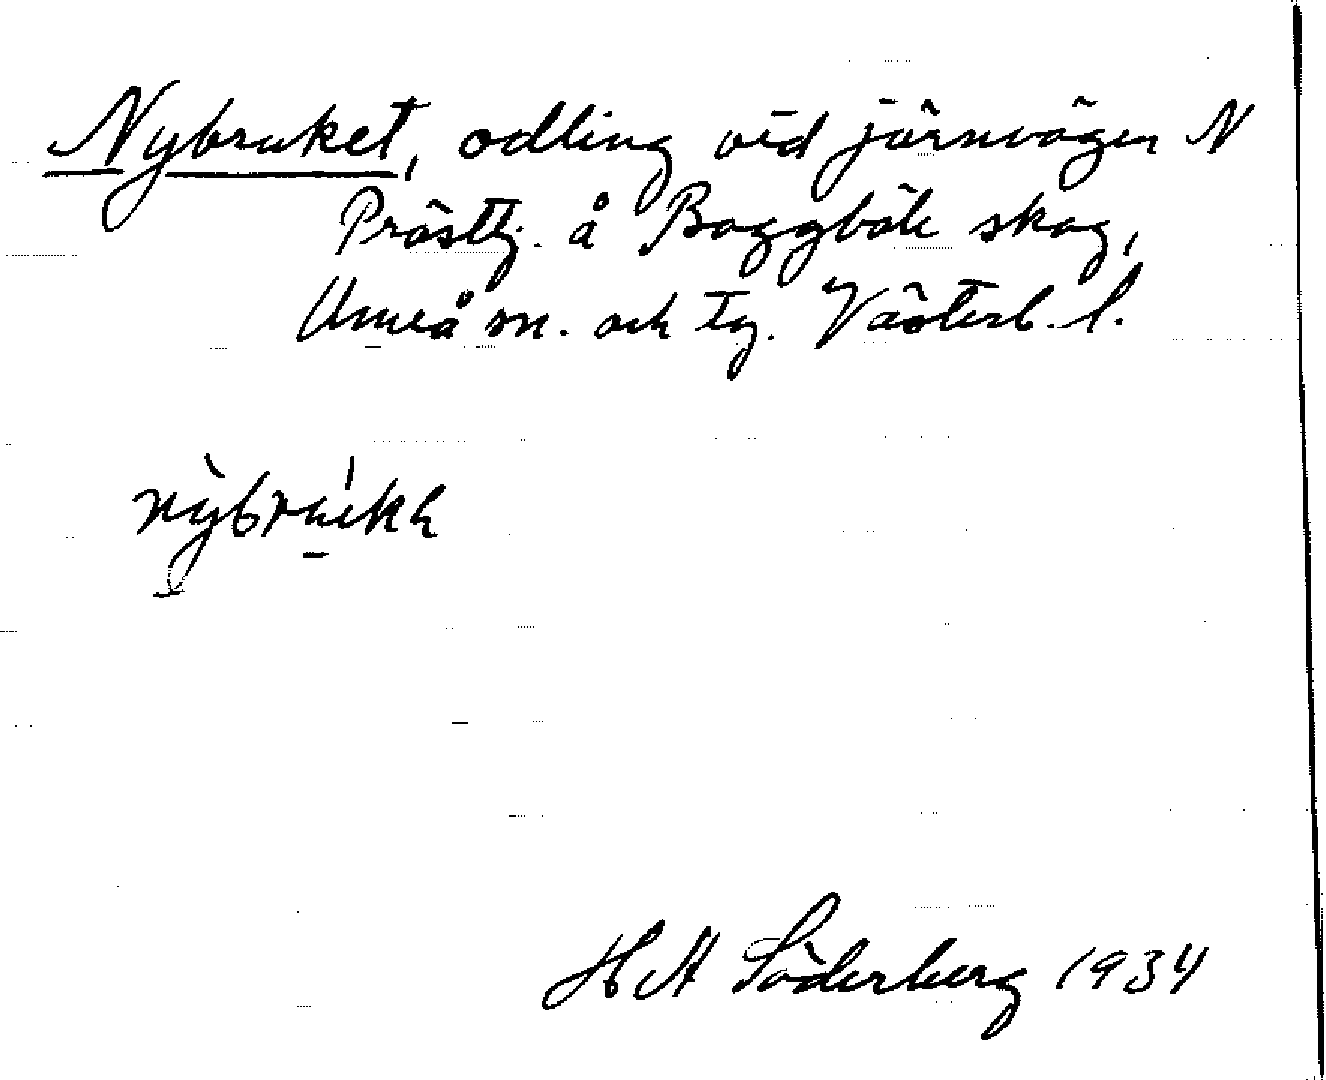 Nybruket, odling vid järnvägen N
Prästtj. å Baggböle skog,
Umeå sn. och tg. Västerb. l.
nỳbru̲'kk
H A Söderberg 1934